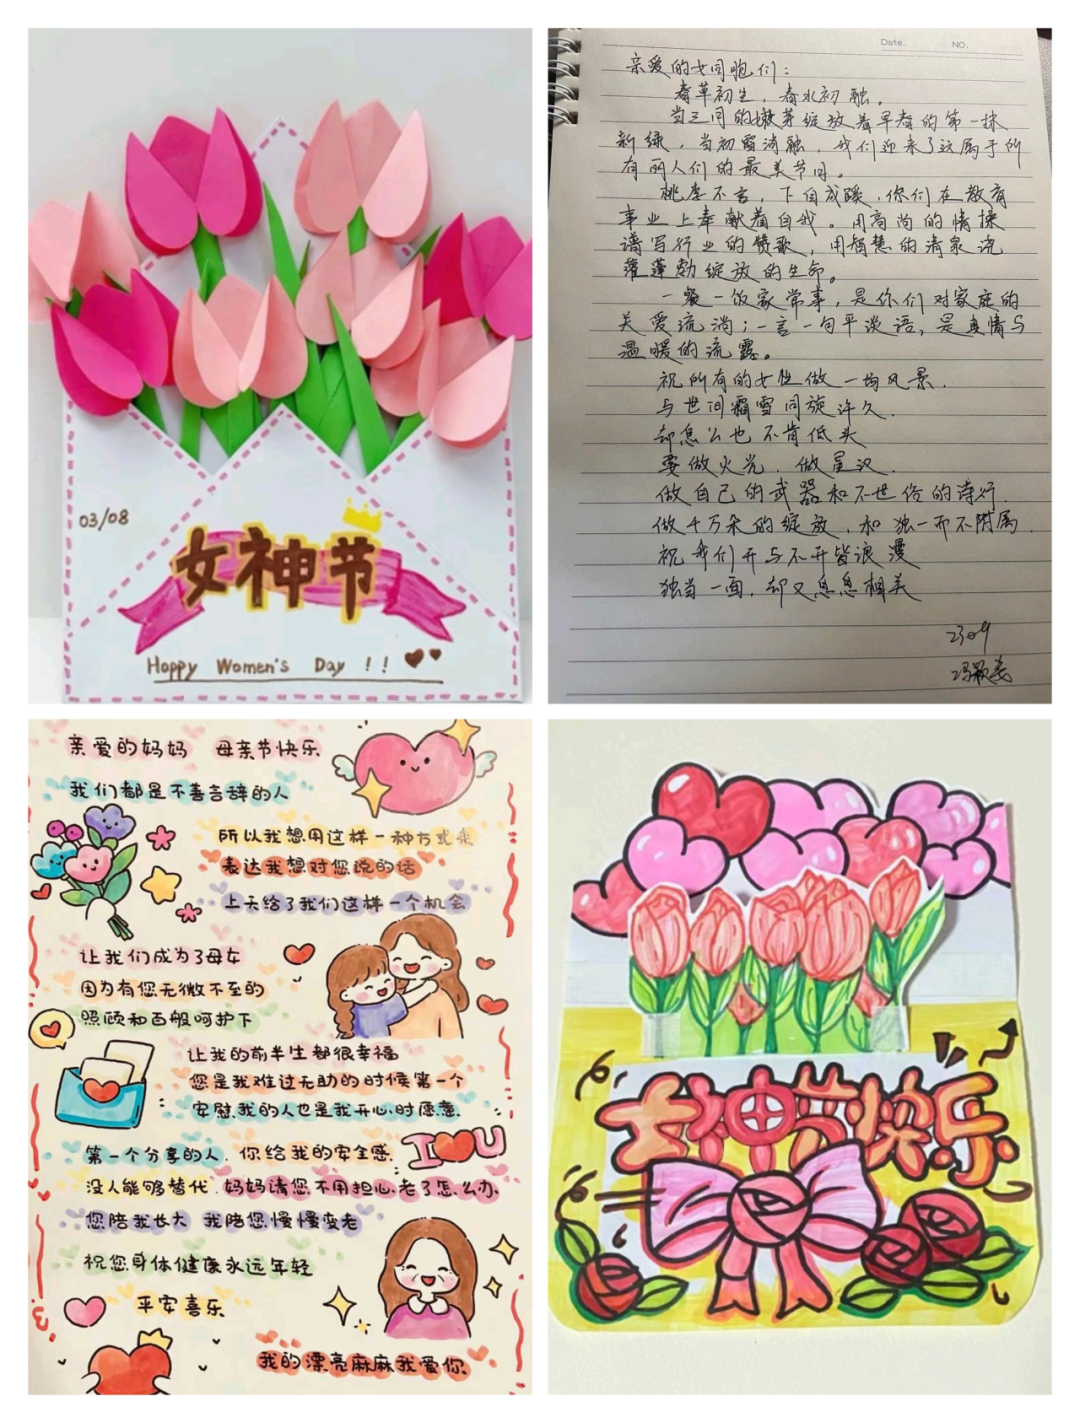 03/08
女神节
Happy Women's Day !!
Date. NO.
亲爱的女同胞们：
春草初生，春水初融。
当三月的嫩芽绽放着早春的第一抹
新绿，当初雪消融，我们迎来了这属于所
有丽人们的最美节日。
桃李不言，下自成蹊，你们在教育
事业上奉献着自我。用高尚的情操
谱写行业的赞歌，用智慧的清泉浇
灌蓬勃绽放的生命。
一餐一饭家常事，是你们对家庭的
关爱流淌；一言一句平淡语，是真情与
温暖的流露。
祝所有的女性做一场风景．
与世间霜雪同旋许久．
却怎么也不肯低头
要做火光．做星汉．
做自己的武器和不世俗的诗行．
做千万朵的绽放，和独一而不附属．
祝我们开与不开皆浪漫
独当一面，却又息息相关
亲爱的妈妈 母亲节快乐
我们都是不善言辞的人
所以我想用这样一种方式来
表达我想对您说的话
上天给了我们这样一个机会
让我们成为了母女
因为有您无微不至的
照顾和百般呵护下
让我的前半生都很幸福
您是我难过无助的时候第一个
安慰我的人也是我开心时愿意
I U
第一个分享的人．你给我的安全感．
没人能够替代．妈妈请您不用担心老了怎么办．
您陪我长大 我陪您慢慢变老
祝您身体健康永远年轻
平安喜乐
我的漂亮麻麻我爱你
女神节快乐